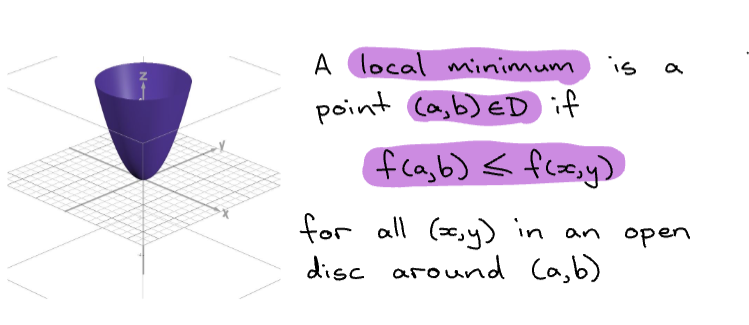 A local minimum is a
point (a,b) ∈ D if
f(a,b) ≤ f(x,y)
for all (x,y) in an open
disc around (a,b)
z
y
x